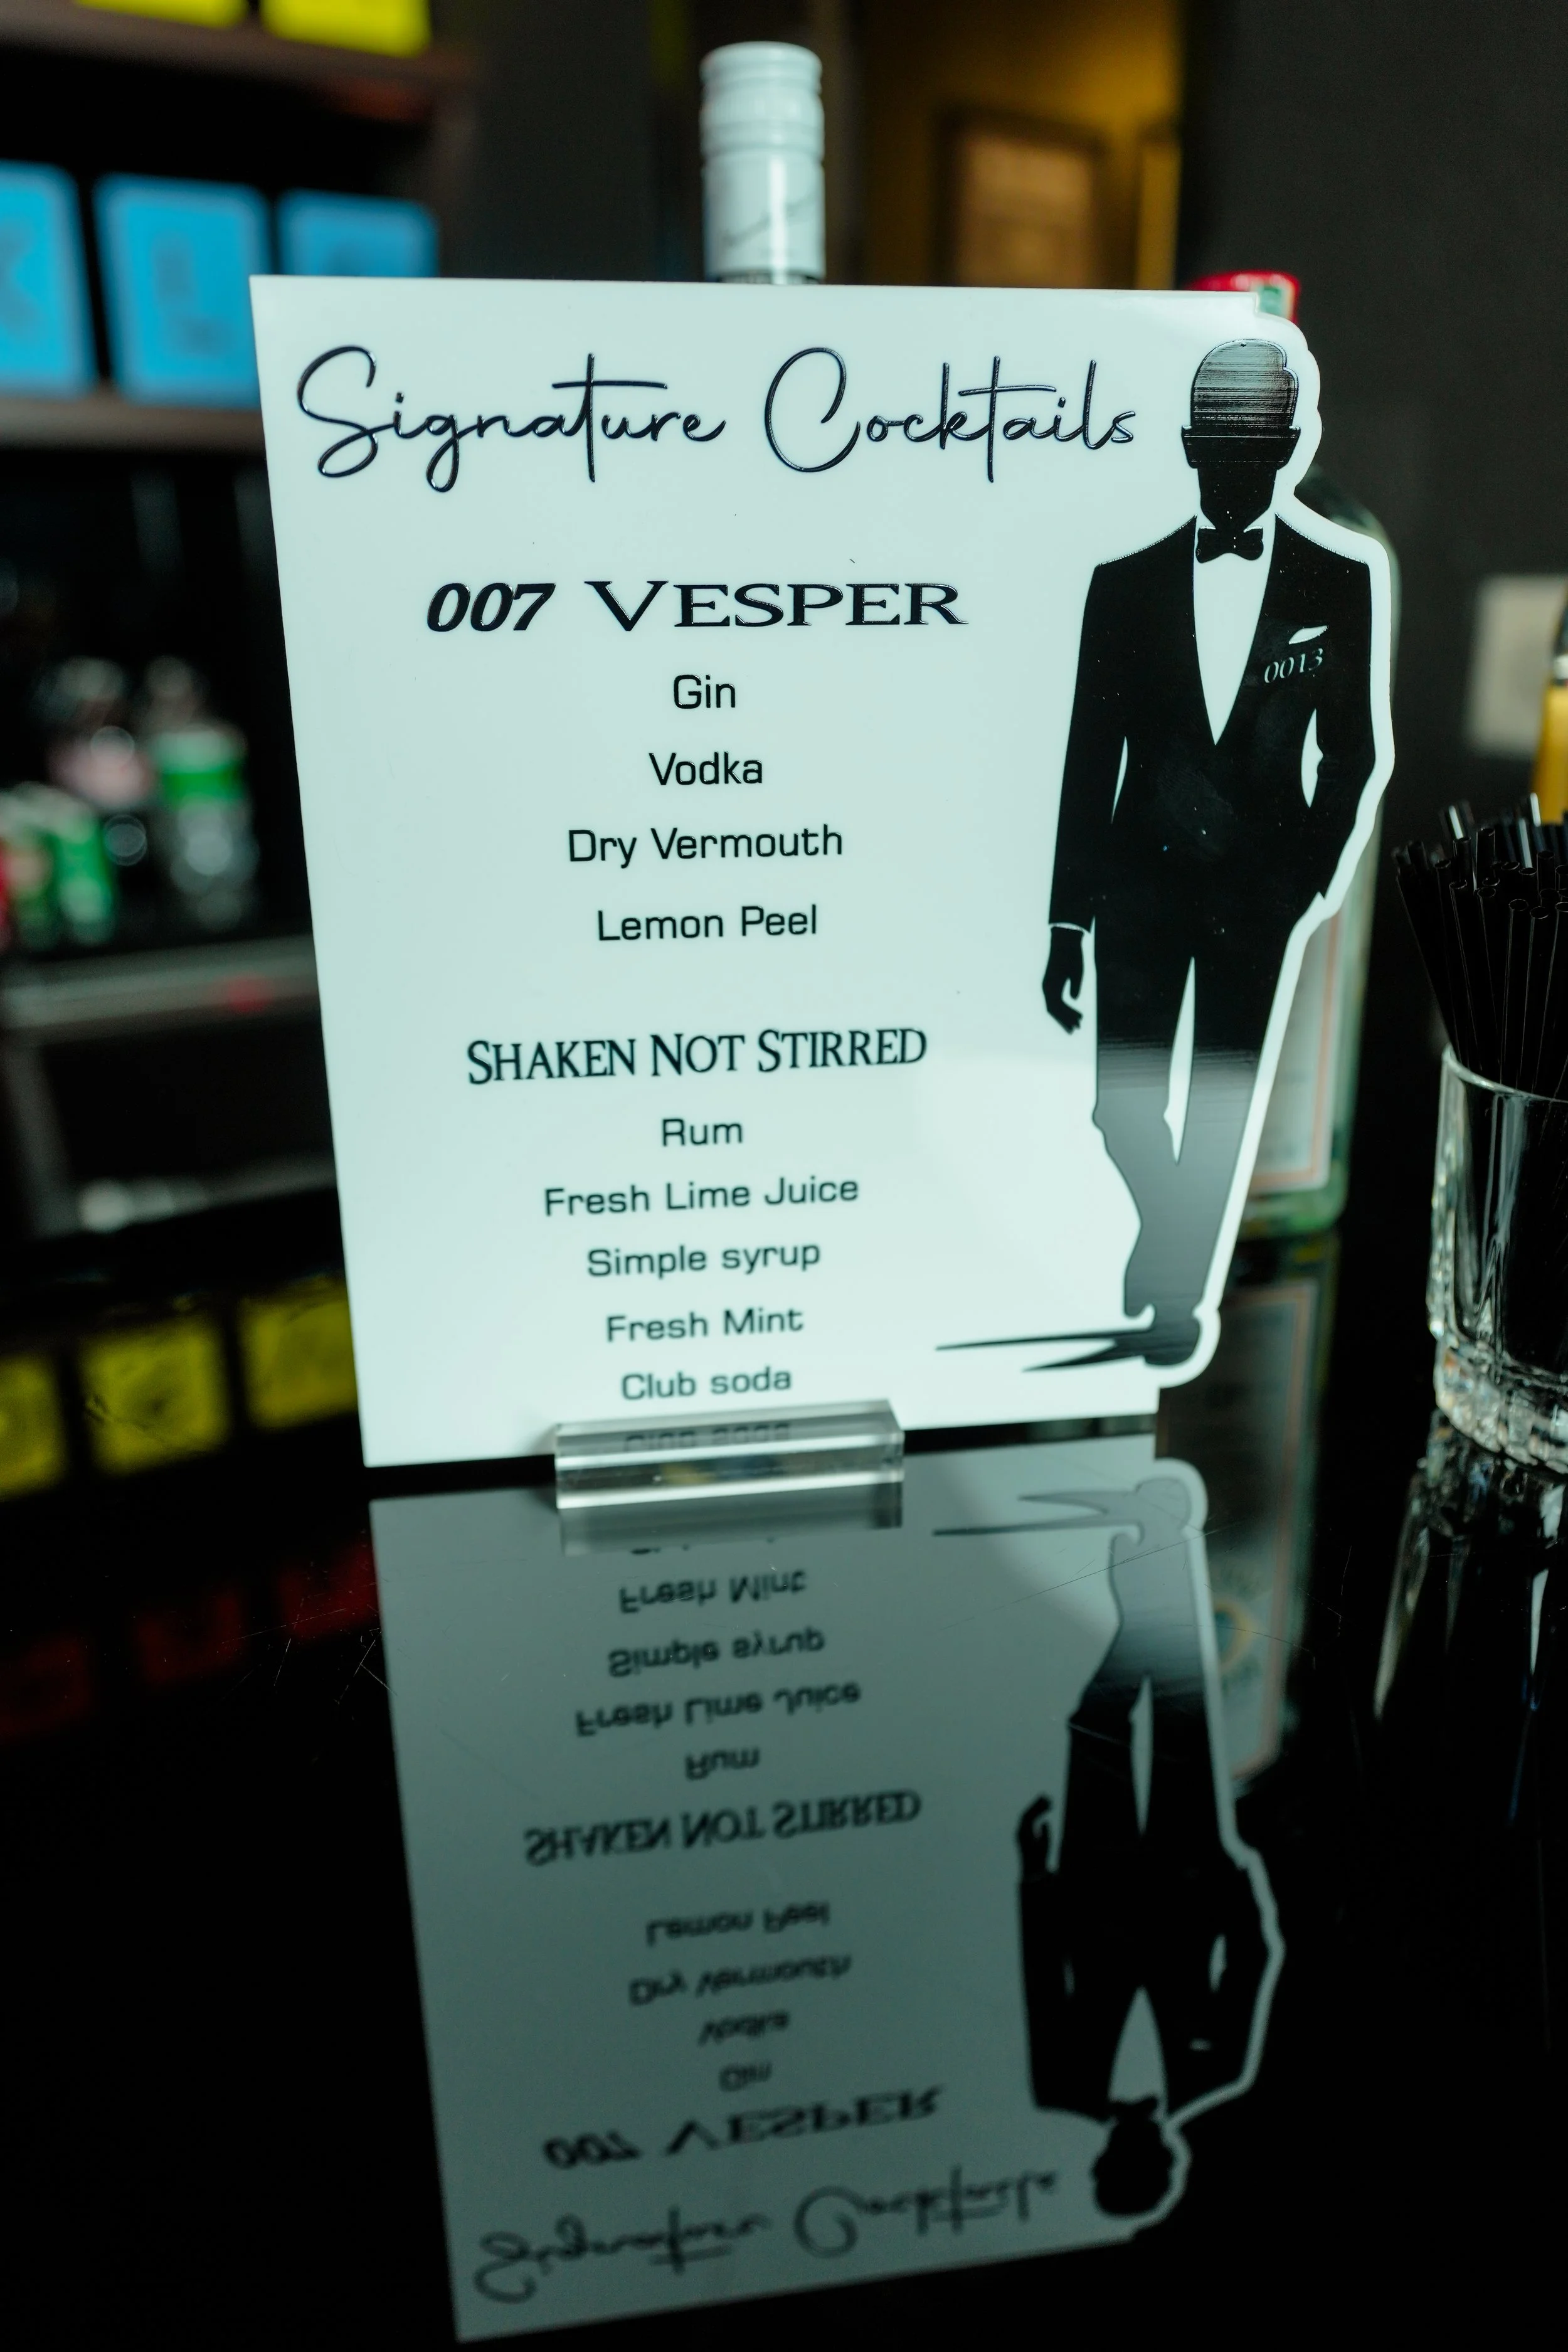 Signature Cocktails
007 VESPER
0013
Gin
Vodka
Dry Vermouth
Lemon Peel
SHAKEN NOT STIRRED
Rum
Fresh Lime Juice
Simple syrup
Fresh Mint
Club soda